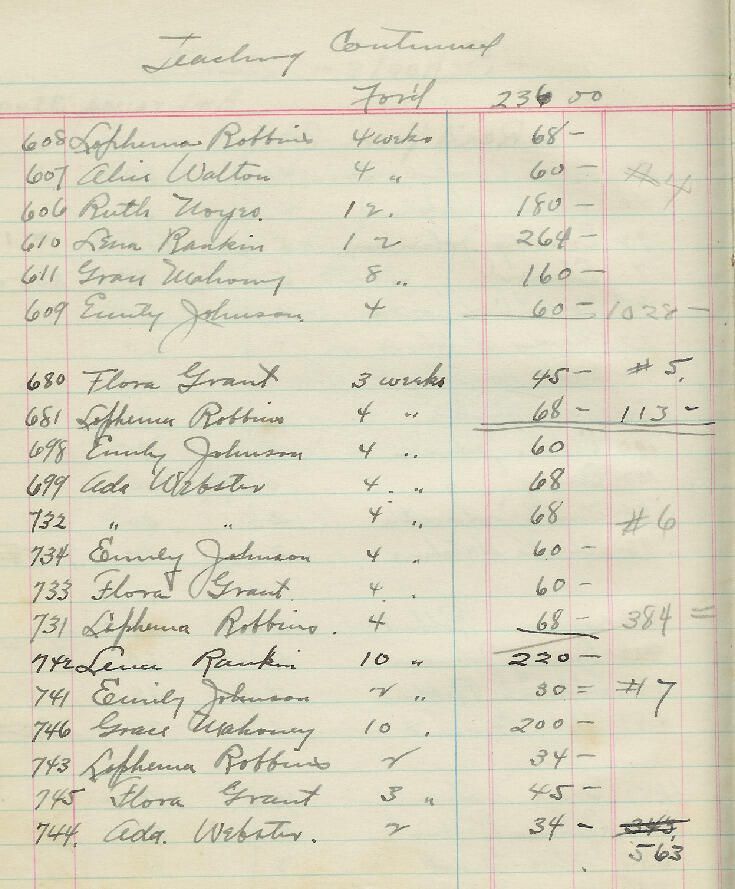 Teaching Continued
For'd 236 00
608 Lophema Robbins 4 weks 68 -
607 Alice Walton 4 " 60 - #4
606 Ruth Noyes. 12. 180 -
610 Lena Rankin 12 264 -
611 Grace Mahoney 8 " 160 -
609 Emily Johnson. 4 60 - 1028 -
680 Flora Grant 3 weeks 45 - # 5.
681 Lophema Robbins 4 " 68 - 113 -
698 Emily Johnson 4 " 60
699 Ada Webster 4. " 68
732 " " 4 " 68 #6
734 Emily Johnson 4 . 60 -
733 Flora Grant 4. . 60 -
731 Lophema Robbins. 4 68 - 384 =
742 Lena Rankin 10 " 220 -
741 Emily Johnson 2 " 30 = #7
746 Grace Mahoney 10 . 200 -
743 Lophema Robbins 2 34 -
745 Flora Grant 3 " 45 -
744. Ada. Webster. 2 34 - 343.
563